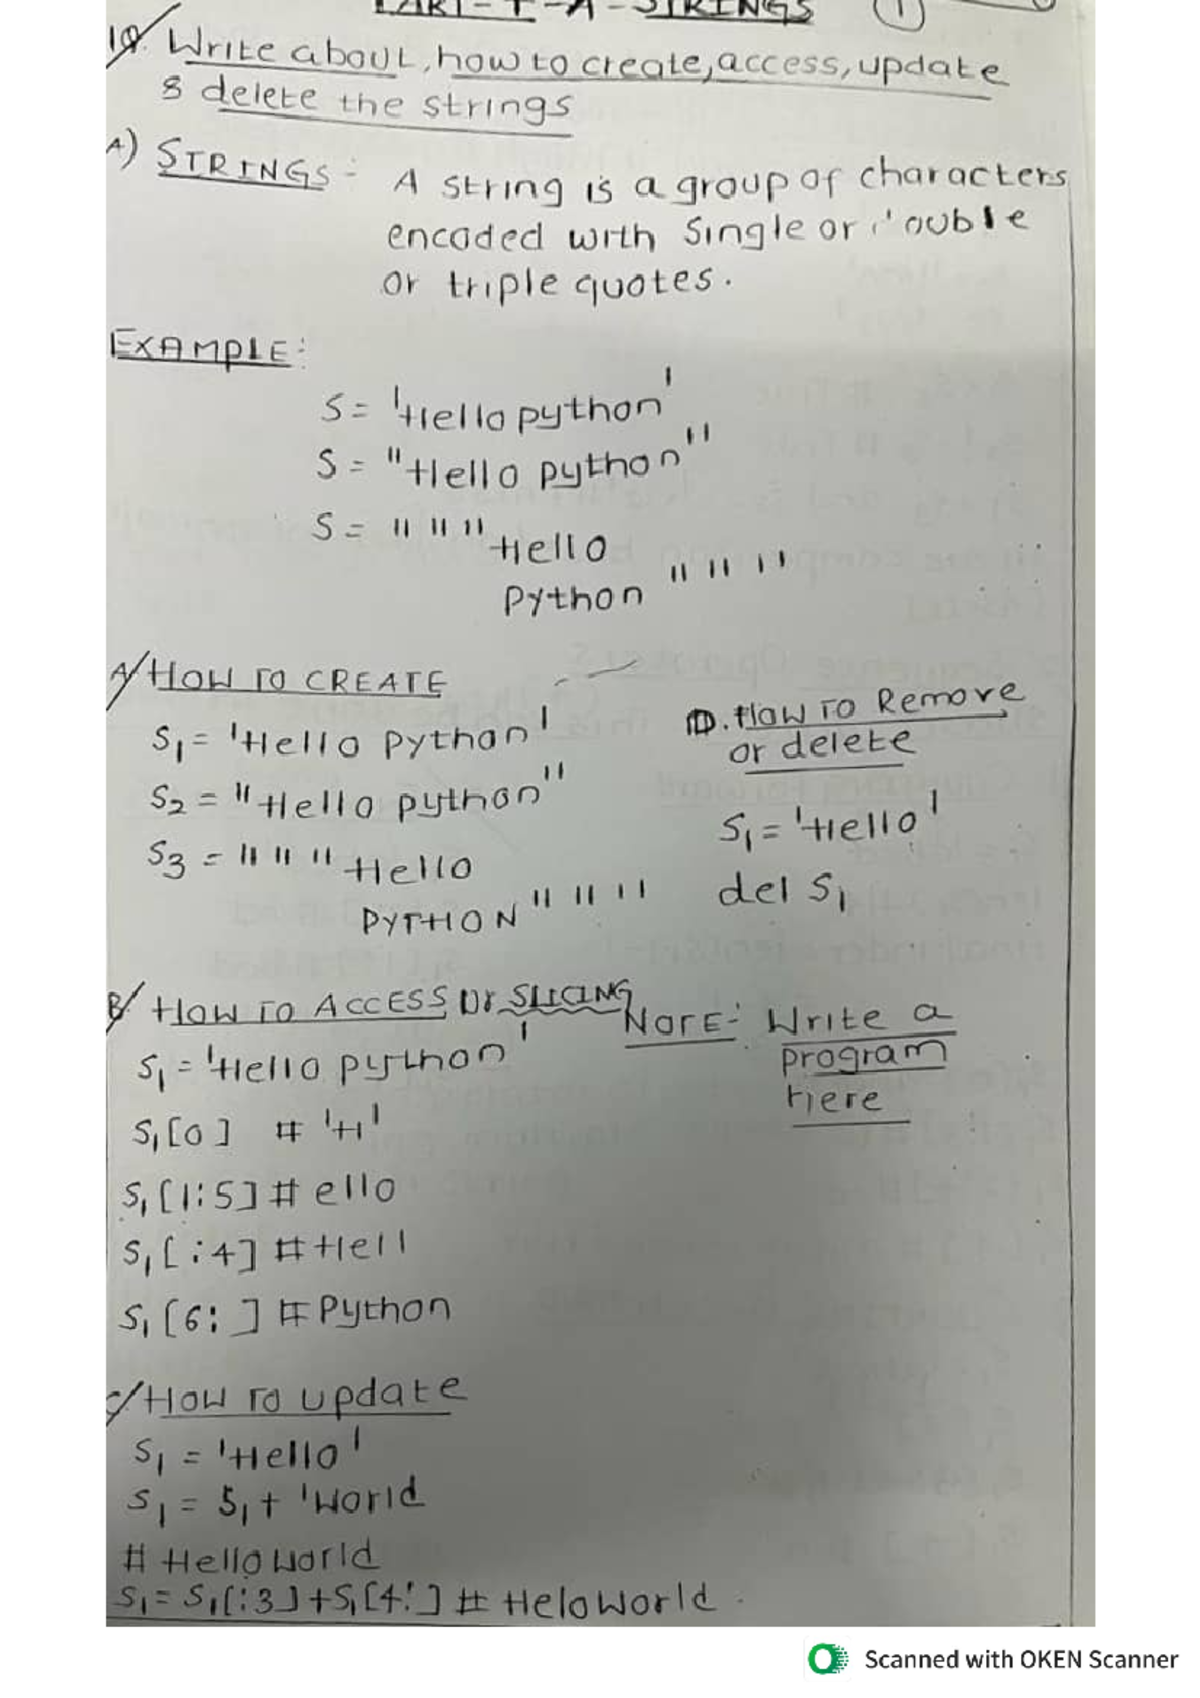 PART-I-A-STRINGS 1
1Q. Write about, how to create, access, update
& delete the strings
A) STRINGS:- A string is a group of characters
encoded with Single or double
or triple quotes.
EXAMPLE:
S = 'Hello python'
S = "Hello python"
S = """Hello
Python """
A/ HOW TO CREATE
S1 = 'Hello Python'
S2 = "Hello python"
S3 = """Hello
PYTHON"""
D. How TO Remove
or delete
S1 = 'Hello'
del S1
B/ HOW TO ACCESS Or SLICING
S1 = 'Hello python'
S1[0] # 'H'
S1[1:5] # ello
S1[:4] # Hell
S1[6:] # Python
NOTE:- Write a
program
Here
C/ HOW TO update
S1 = 'Hello'
S1 = S1 + 'World
# Hello world
S1 = S1[:3]+S1[4:] # HeloWorld.
Scanned with OKEN Scanner